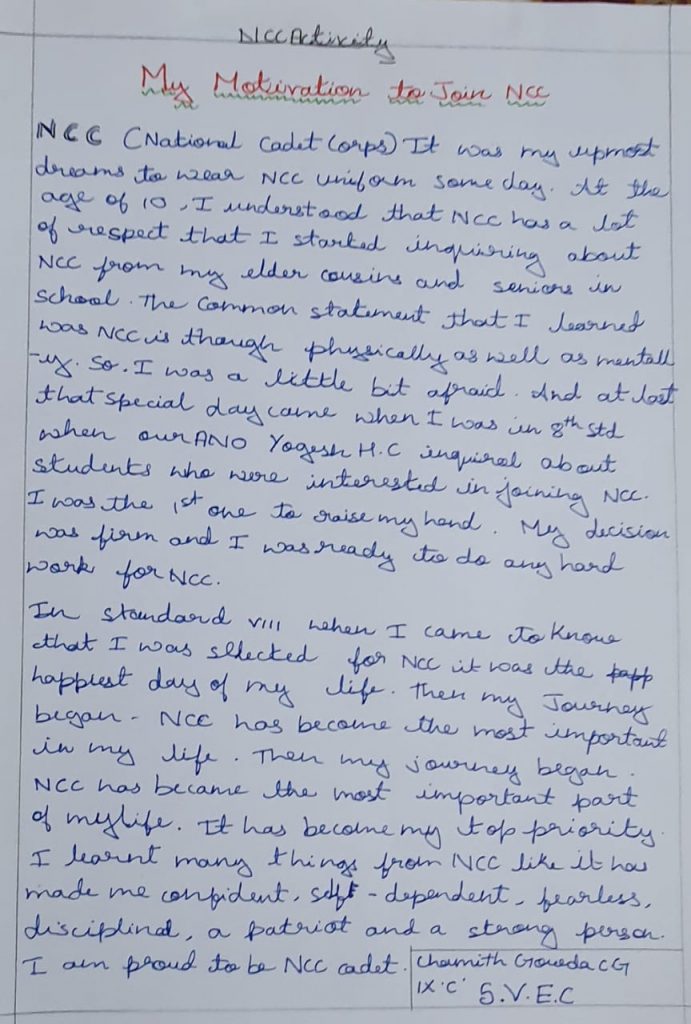 NCC Activity
My Motivation to Join NCC
NCC (National Cadet Corps) It was my upmost
dreams to wear NCC uniform some day. At the
age of 10, I understood that NCC has a lot
of respect that I started inquiring about
NCC from my elder cousins and seniors in
school. The common statement that I learned
was NCC is though physically as well as mentall
-y. So. I was a little bit afraid. And at last
that special day came when I was in 8th std
when our ANO Yogesh H.C inquired about
students who were interested in joining NCC.
I was the 1st one to raise my hand. My decision
was firm and I was ready to do any hard
work for NCC.
In standard VIII when I came to know
that I was sllected for NCC it was the happ
happiest day of my life. Then my Journey
began - NCC has become the most important
in my life. Then my journey began.
NCC has became the most important part
of my life. It has become my top priority.
I learnt many things from NCC like it has
made me confident, self - dependent, fearless,
disciplined, a patriot and a strong person.
I am proud to be NCC cadet.
Chamith Gowda CG
IX 'C' S.V.E.C